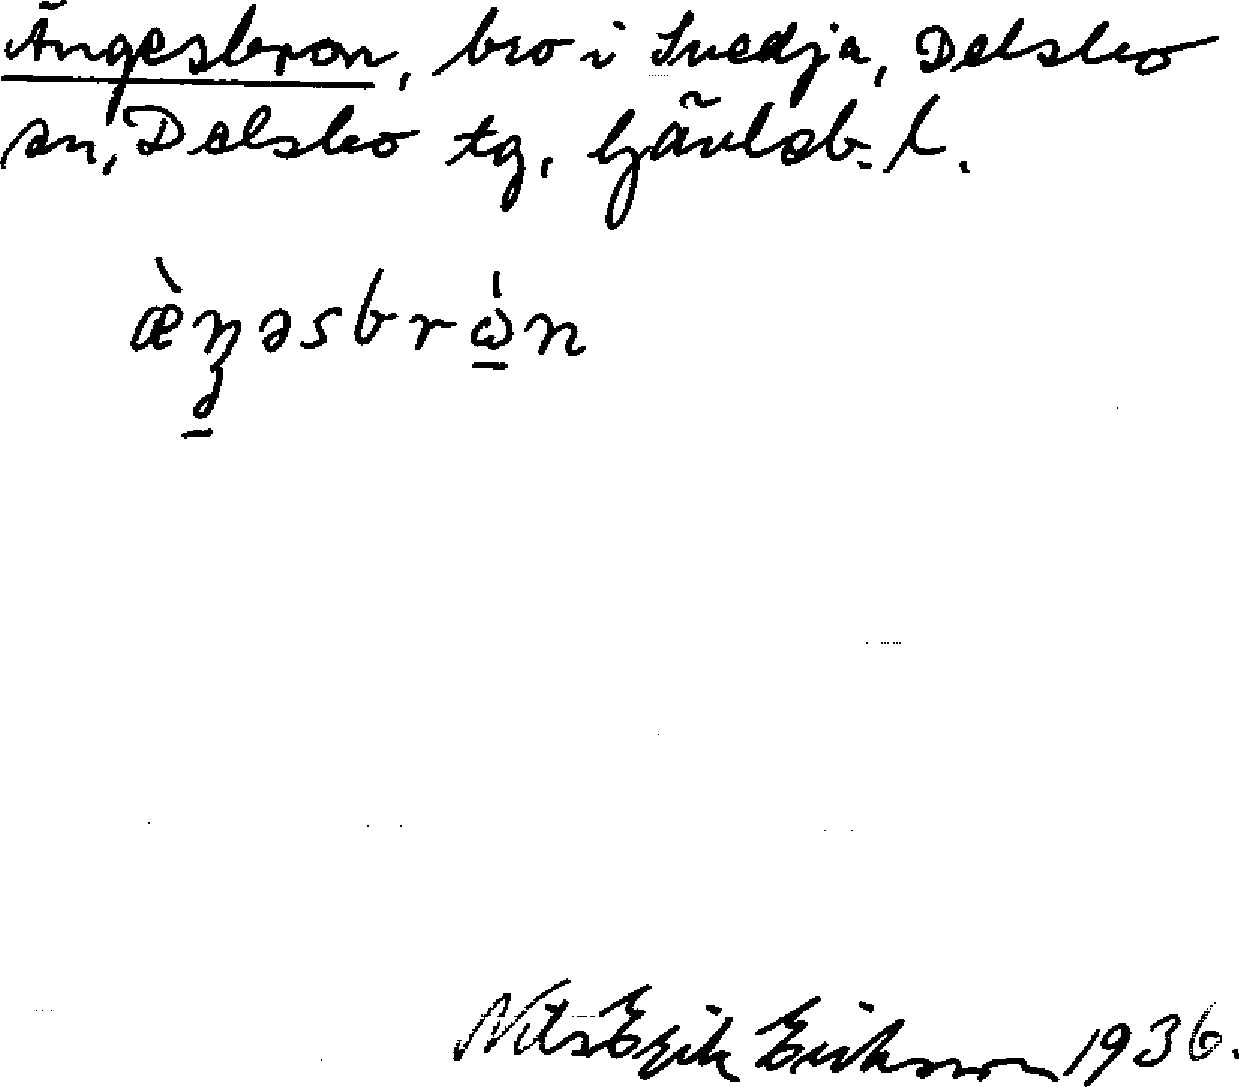 Ängesbron, bro i Svedja, Delsbo
sn, Delsbo tg, Gävleb. l.
æ̀ŋəsbrὼ̲n
Nils Erik Eriksson 1936.